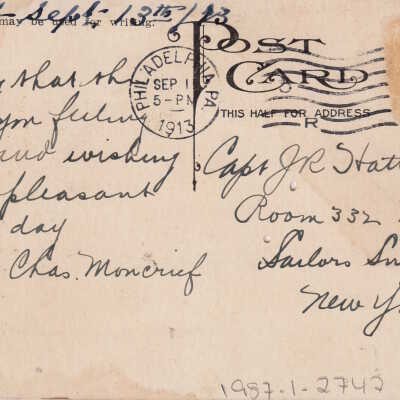 Sept. 13th/13
may be used for writing.
that th
you feeling
and wishing
pleasant
day
Chas. Moncrief
POST
CARD
THIS HALF FOR ADDRESS
PHILADELPHIA, PA
SEP 1
5-PM
1913
R
Capt J R Hatt
Room 332
Sailors Sn
New Y
1987-1-2742